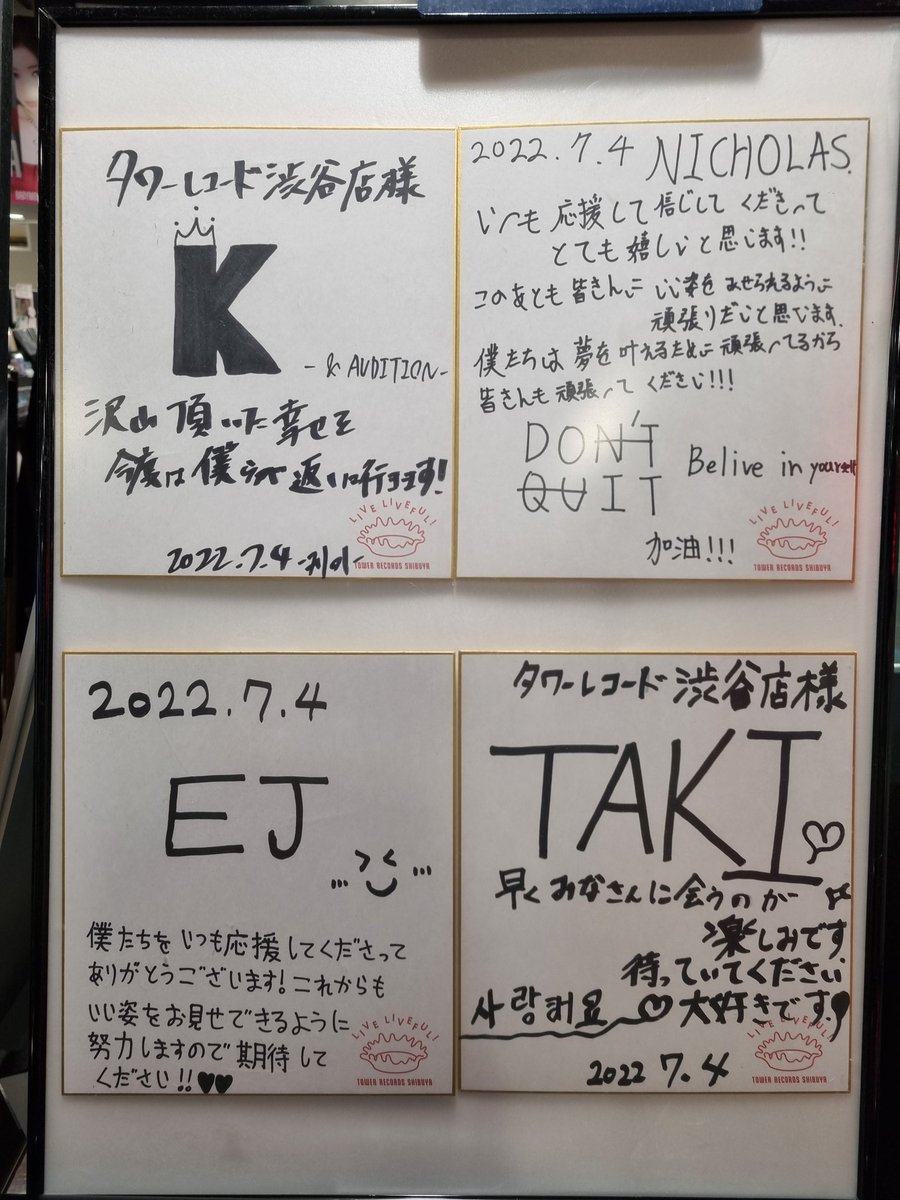 タワーレコード渋谷店様
K
- & AUDITION -
沢山頂いた幸せを
今度は僕らが返しに行きます!
2022.7.4 -케이-
LIVE LIVEFUL!
TOWER RECORDS SHIBUYA
2022.7.4 NICHOLAS.
いつも応援して信じてくださって
とても嬉しいと思います!!
このあとも皆さんに いい姿をみせられるように
頑張りたいと思います.
僕たちは夢を叶えるために頑張ってるから
皆さんも頑張ってください!!!
DON'T
QUIT
Belive in yourself
加油!!!
LIVE LIVEFUL!
TOWER RECORDS SHIBUYA
2022.7.4
EJ
僕たちをいつも応援してくださって
ありがとうございます! これからも
いい姿をお見せできるように
努力しますので期待して
ください!!♥♥
LIVE LIVEFUL!
TOWER RECORDS SHIBUYA
タワーレコード渋谷店様
TAKI
早くみなさんに会うのが
楽しみです
待っていてください
사랑해요 ♡ 大好きです!
2022 7.4
LIVE LIVEFUL!
TOWER RECORDS SHIBUYA